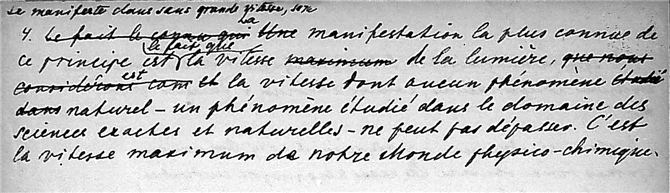 se manifeste dans sans grande vitesse, son
4. Le fait le connu qui Une La manifestation la plus connue de
ce principe est le fait que la vitesse maximum de la lumière, que nous
considérons com est et la vitesse dont aucun phénomène étudié
dans naturel – un phénomène étudié dans le domaine des
sciences exactes et naturelles – ne peut pas dépasser. C'est
la vitesse maximum de notre Monde physico-chimique.